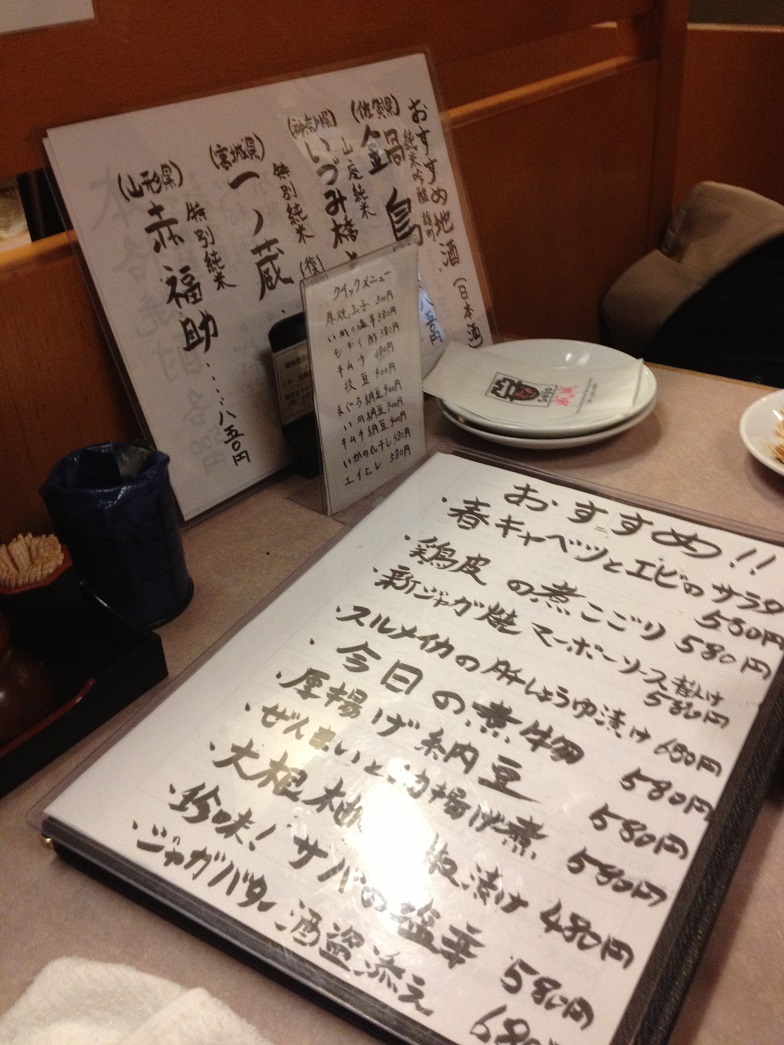 おすすめ地酒(日本酒)
純米吟醸
(佐賀県)
鍋島
八五〇円
山廃純米
(神奈川県)
いづみ橋
特別純米
(宮城県)
一ノ蔵
特別純米
(山形県)
赤福助…八五〇円
クイックメニュー
厚焼玉子
いかの塩辛 380円
もずく酢 380円
キムチ 380円
枝豆 400円
まぐろ納豆
いか納豆
キムチ納豆
いかの丸干し 580円
エイヒレ 580円
おすすめ!!
・春キャベツとエビのサラダ 580円
・鶏皮の煮こごり 580円
・新ジャガ焼マーボーソース
580円
・スルメイカの肝しょうゆ漬け 680円
・今日の煮物 580円
・厚揚げ納豆 580円
・ぜんまいと油揚げ煮 580円
・大根 漬け 480円
・珍味!サバの塩辛 580円
・ジャガバタ酒盗添え